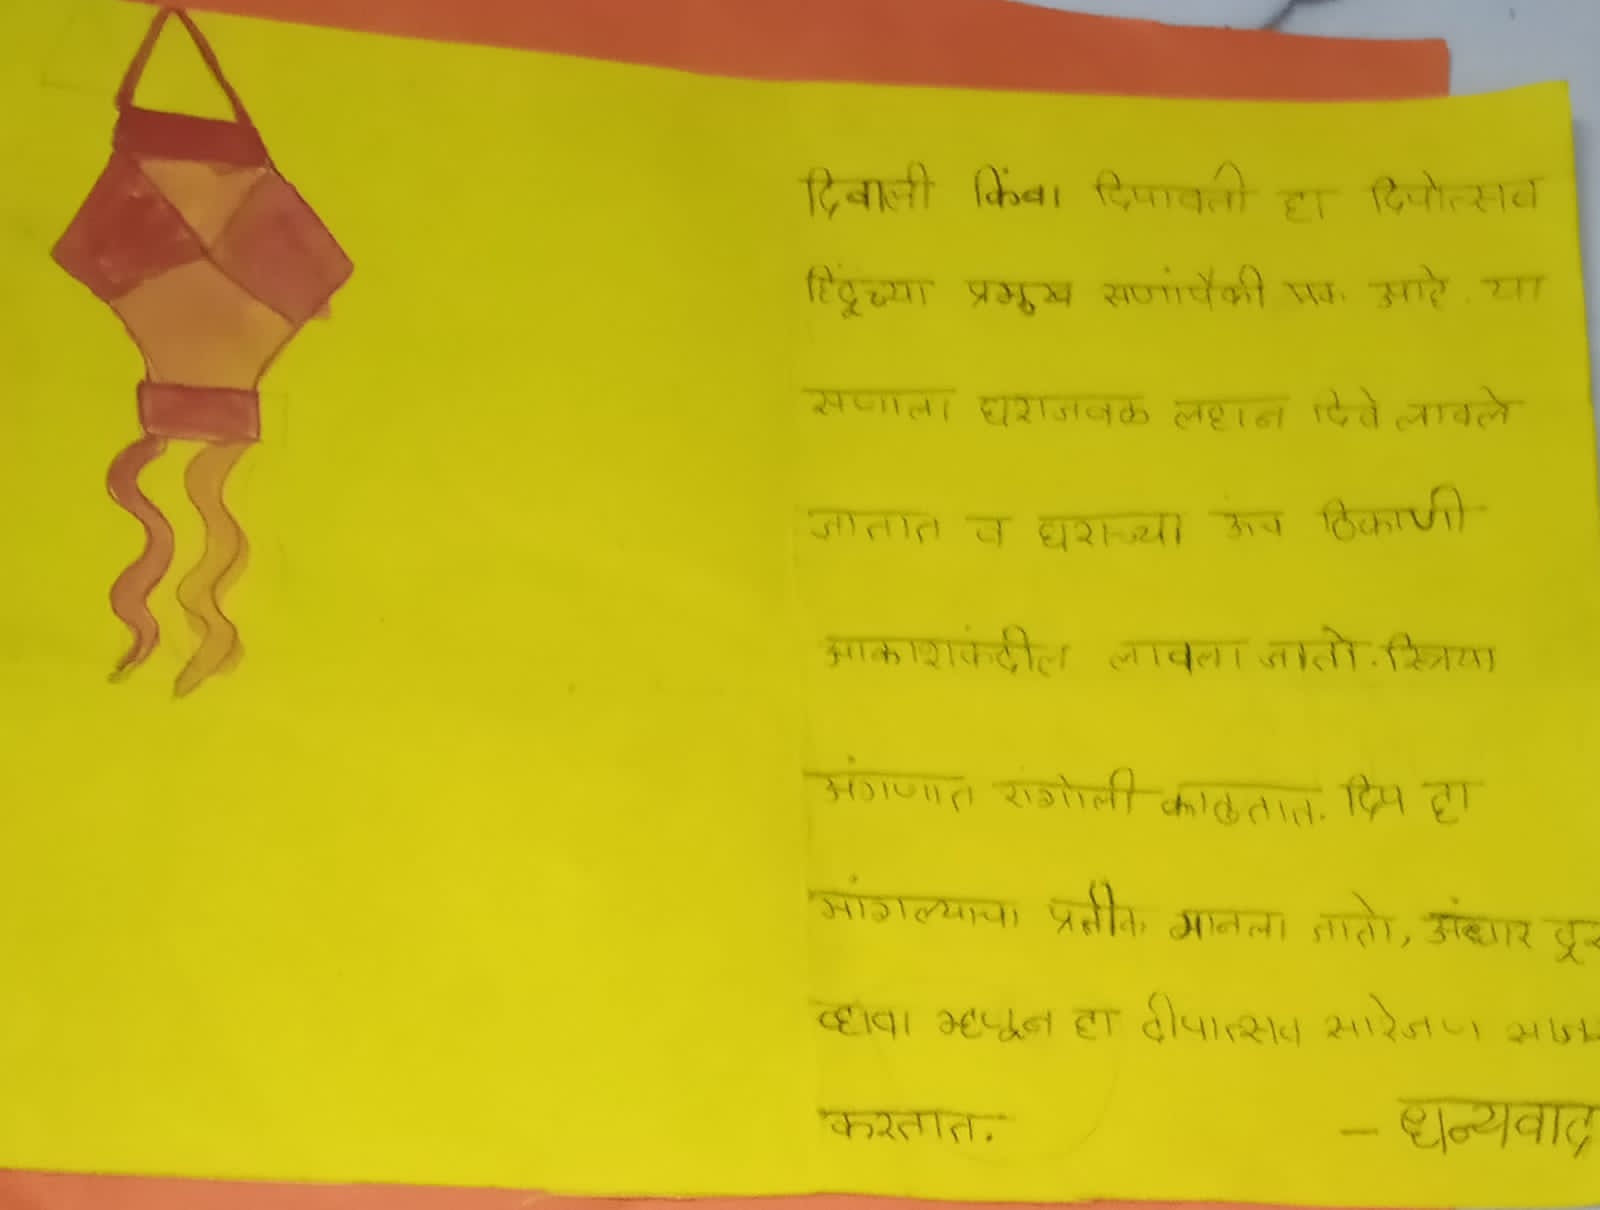 दिवाली किंवा दिपावली हा दिपोत्सव
हिंदूच्या प्रमुख सणांपैकी एक आहे. या
सणाला घराजवळ लहान दिवे लावले
जातात व घराच्या ऊंच ठिकाणी
आकाशकंदील लावला जातो. स्त्रिया
अंगणात रांगोली काढतात. दिप हा
मांगल्याचा प्रतीक मानला जातो, अंधार दूर
व्हावा म्हणून हा दीपोत्सव सारेजण साजरा
करतात.
- धन्यवाद